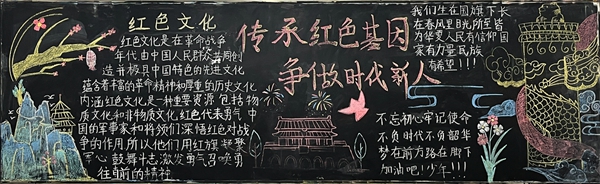 红色文化
红色文化是在革命战争
年代由中国人民群众共同创
造并极具中国特色的先进文化
蕴含着丰富的革命精神和厚重的历史文化
内涵红色文化是一种重要资源包括物
质文化和非物质文化红色代表勇气中
国的军事家和将领们深悟红色对战
争的作用所以他们用红旗凝聚
军心鼓舞斗志激发勇气召唤勇
往直前的精神
传承红色基因
争做时代新人
我们生在国旗下长
在春风里目光所至皆
为华夏人民有信仰国
家有力量民族
有希望!!!
不忘初心牢记使命
不负时代不负韶华
梦在前方路在脚下
加油吧!少年!!!